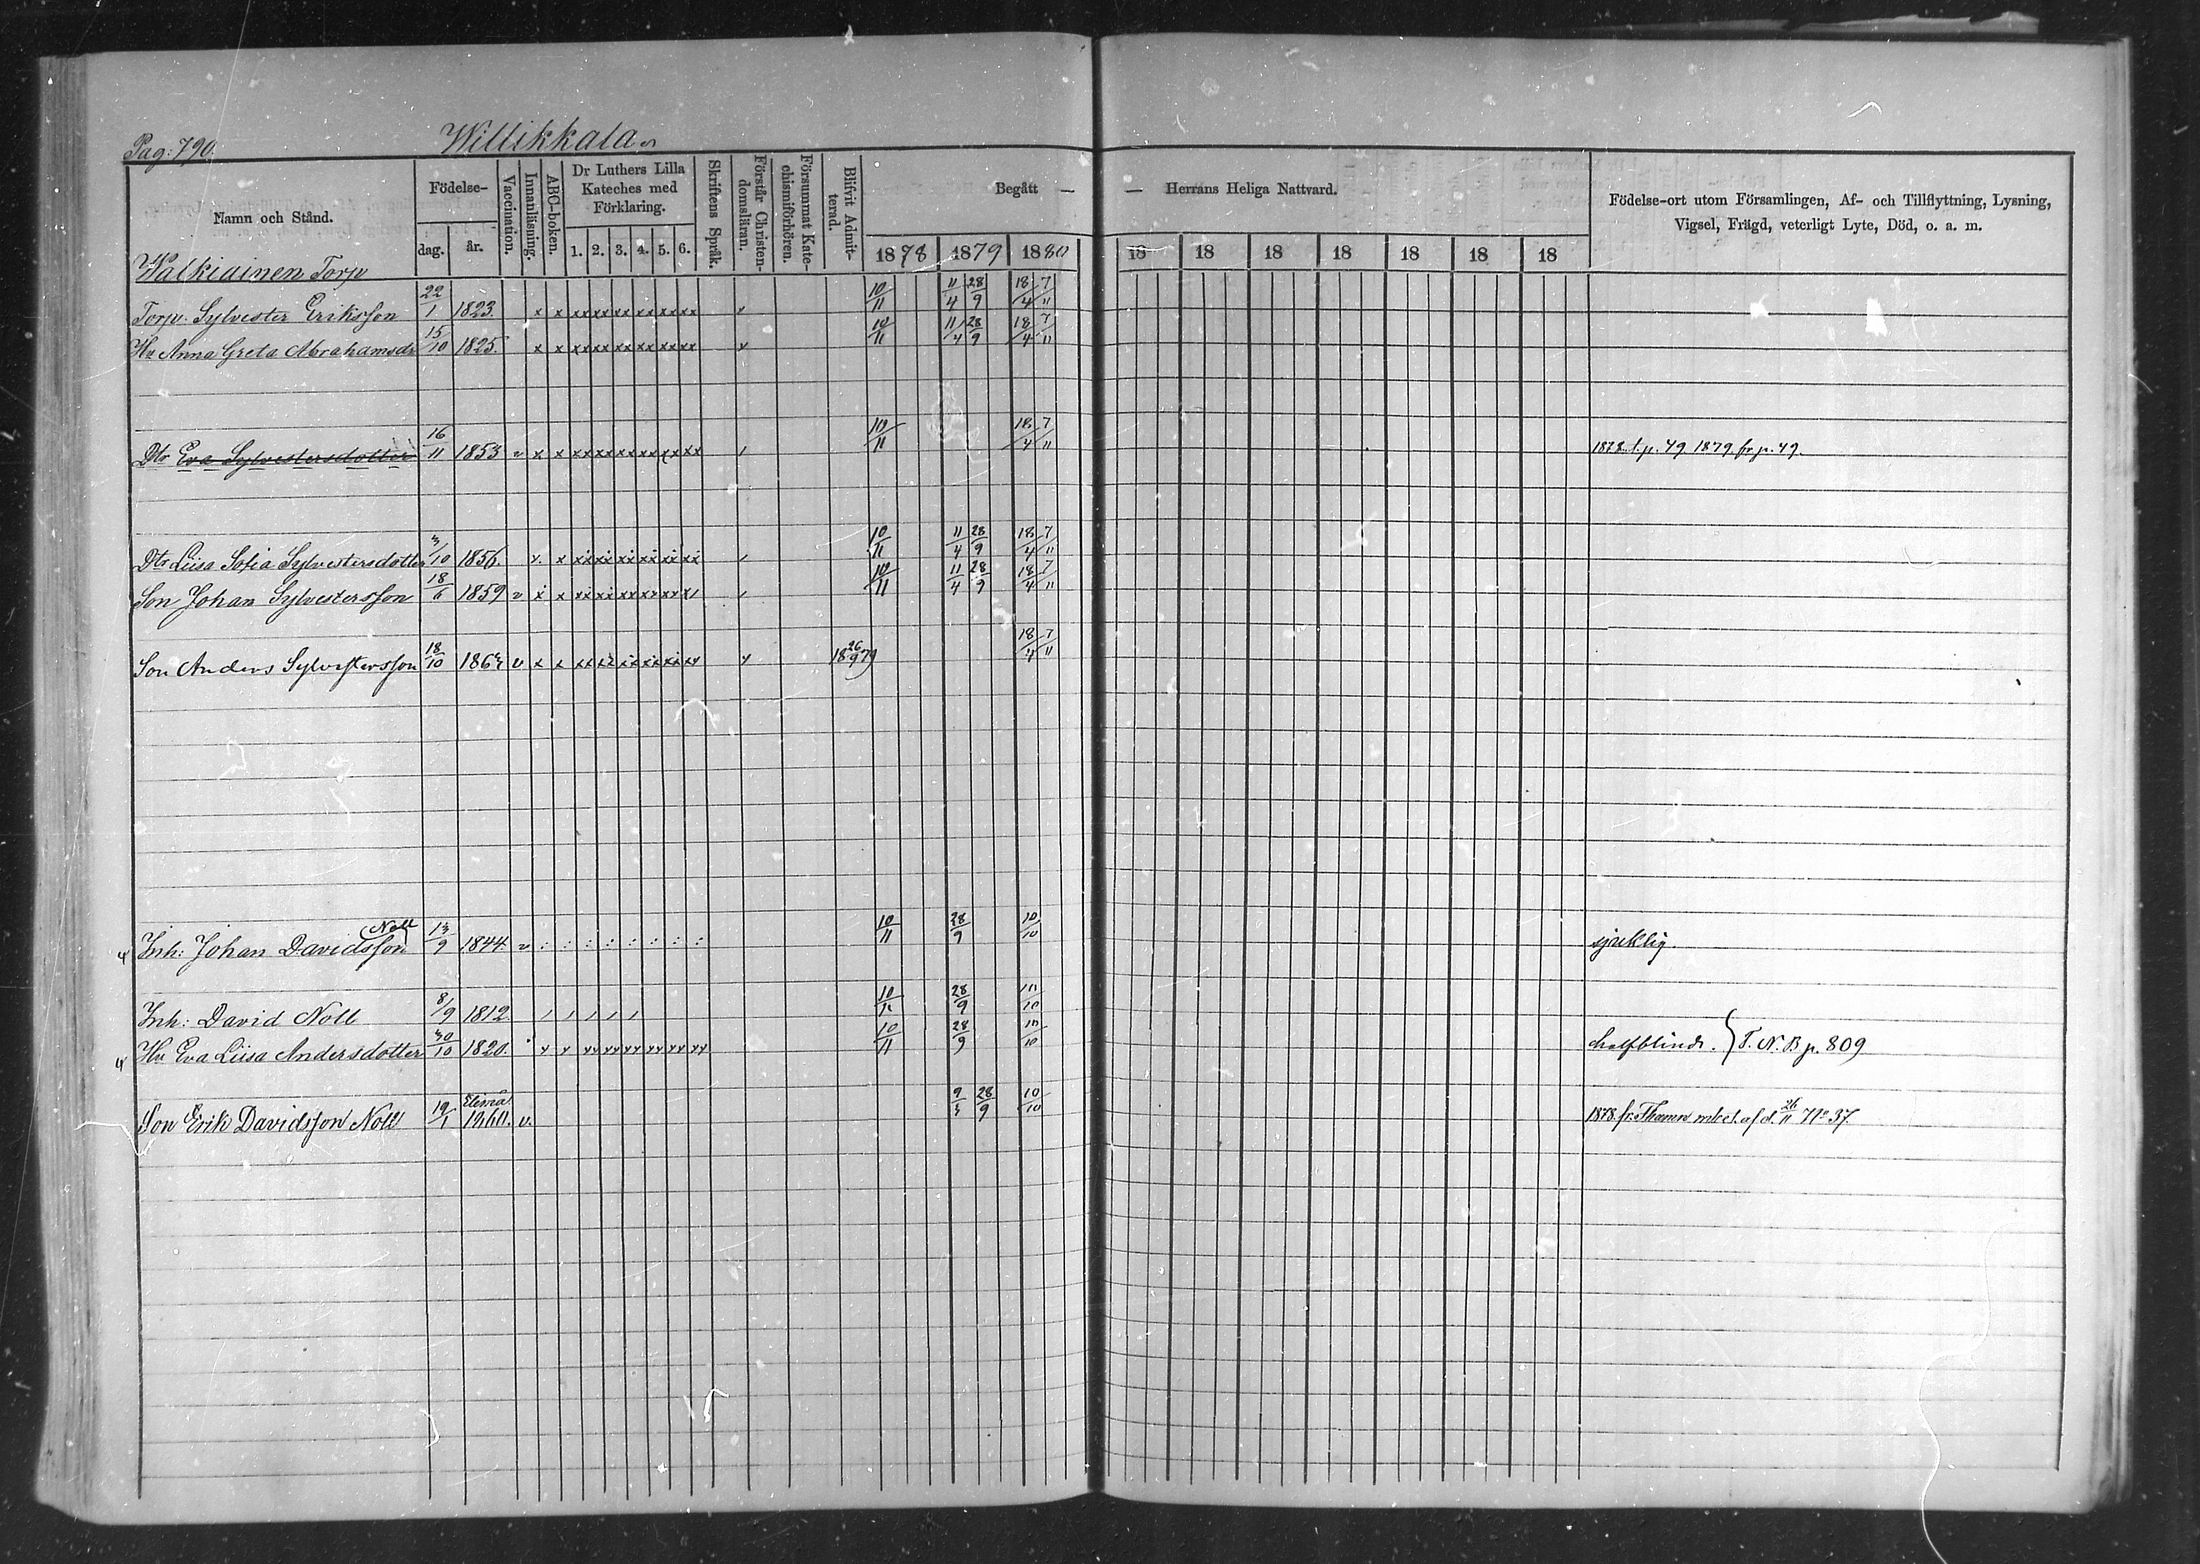 Pag: 790. Willikkala
Namn och Stånd. Födelse- dag. år. Vaccination. Innanläsning. ABC-boken. Dr Luthers Lilla Kateches med Förklaring. 1. 2. 3. 4. 5. 6. Skriftens Språk. Förstår Christendomsläran. Försummat Katechismiförhören. Blifvit Admitterad. Begått — — Herrans Heliga Nattvard. Födelse-ort utom Församlingen, Af- och Tillflyttning, Lysning, Vigsel, Frägd, veterligt Lyte, Död, o. a. m.
1878 1879 1880 18 18 18 18 18 18 18
Walkiainen Torp
Torp. Sylvester Eriksson 22/1 1823. x x xx xx xx xx xx xx 10/11 11/4 28/9 18/4 7/11
Hu Anna Greta Abrahamsdr 15/10 1825. x x xx xx xx xx xx xx x 10/11 11/4 28/9 18/4 7/11
Dtr Eva Sylvestersdotter 16/11 1853 v x x xx xx xx xx xx xx 10/11 18/4 7/11 1878. t. p. 79 1879 fr p. 49.
Dtr Liisa Sofia Sylvestersdotter 3/10 1856. x. x xx xx xx xx xx xx 10/11 11/4 28/9 18/4 7/11
Son Johan Sylvestersson 18/6 1859 v x x xx xx xx xx xx 10/11 11/4 28/9 18/4 7/11
Son Anders Sylvestersson 18/10 v x x xx xx xx xx xx 18 26/9 79 18/4 7/11
Inh: Johan Davidsson Noll 13/9 1844. v 10/11 28/9 10/10 sjuklig.
Inh: David Noll 8/9 1812. 10/11 28/9 10/10
Hu Eva Liisa Andersdotter 30/10 1820. 10/11 28/9 10/10 halfblind. } T. N. B p. 809
Son Erik Davidsson Noll 19/1 Elimä 1860. v. 28/9 10/10 1878. fr. Thamm m. bet. af d. 26/11 No 37.